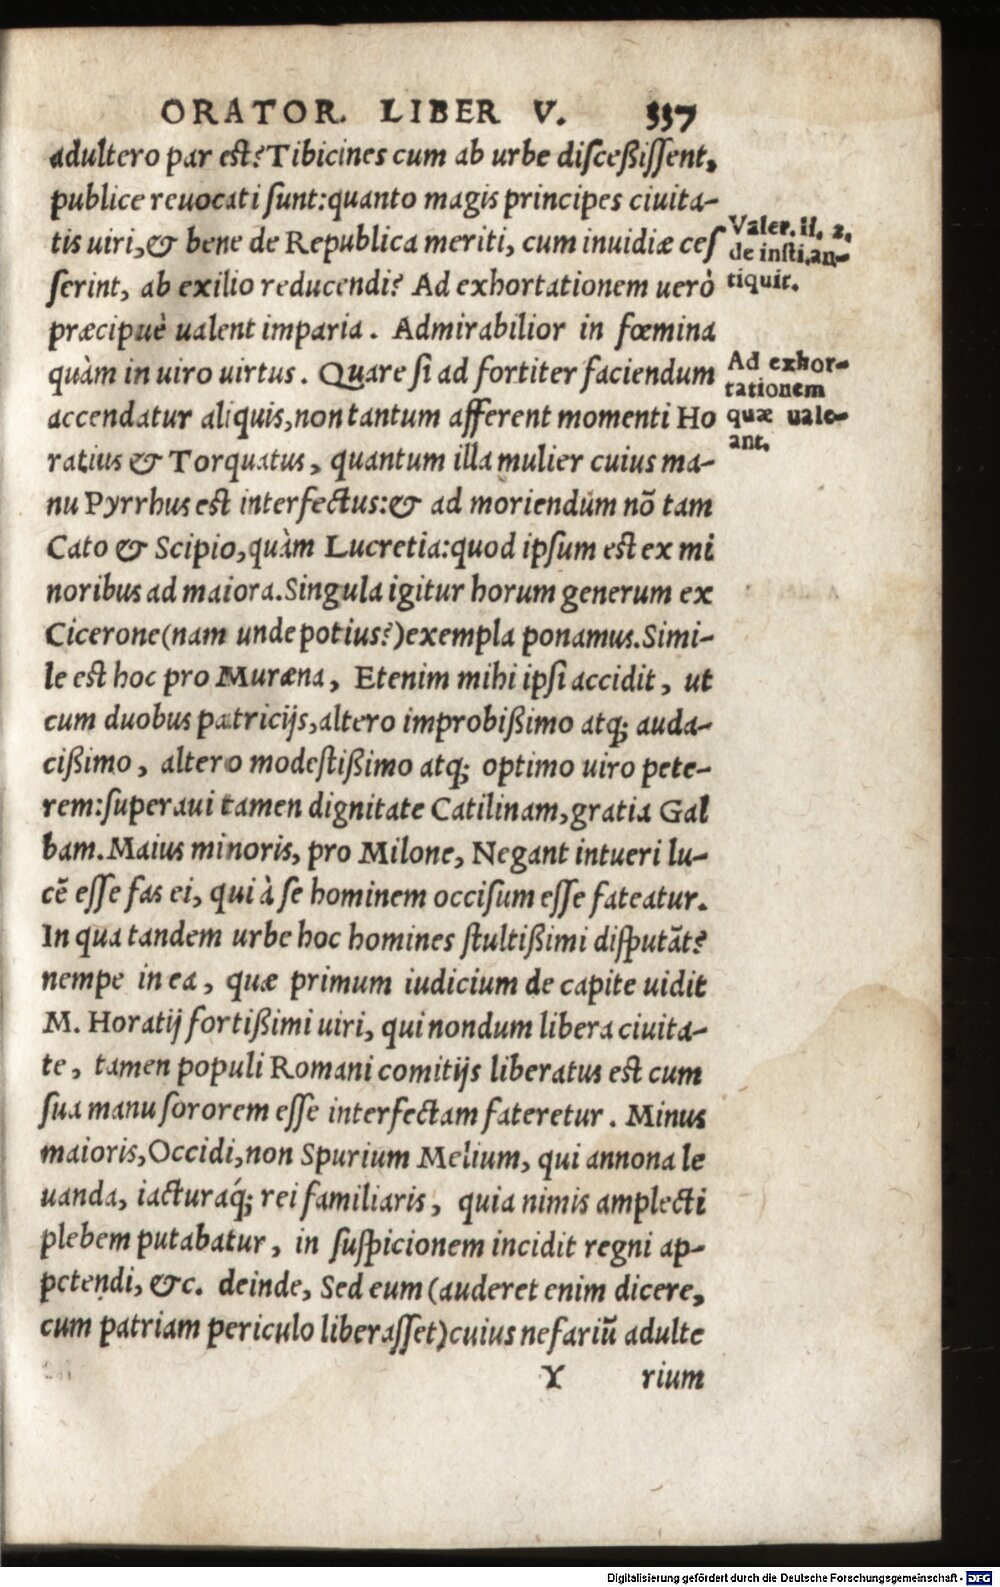 ORATOR. LIBER V. 337
adultero par est? Tibicines cum ab urbe disceßissent,
publice reuocati sunt: quanto magis principes ciuita-
tis uiri, & bene de Republica meriti, cum inuidiæ ces
serint, ab exilio reducendi? Ad exhortationem uerò
præcipuè ualent imparia. Admirabilior in fœmina
quàm in uiro uirtus. Quare si ad fortiter faciendum
accendatur aliquis, non tantum afferent momenti Ho
ratius & Torquatus, quantum illa mulier cuius ma-
nu Pyrrhus est interfectus: & ad moriendum nõ tam
Cato & Scipio, quàm Lucretia: quod ipsum est ex mi
noribus ad maiora. Singula igitur horum generum ex
Cicerone (nam unde potius?) exempla ponamus. Simi-
le est hoc pro Muræna, Etenim mihi ipsi accidit, ut
cum duobus patricijs, altero improbißimo atq; auda-
cißimo, altero modestißimo atq; optimo uiro pete-
rem: superaui tamen dignitate Catilinam, gratia Gal
bam. Maius minoris, pro Milone, Negant intueri lu-
cẽ esse fas ei, qui à se hominem occisum esse fateatur.
In qua tandem urbe hoc homines stultißimi disputãt?
nempe in ea, quæ primum iudicium de capite uidit
M. Horatij fortißimi uiri, qui nondum libera ciuita-
te, tamen populi Romani comitijs liberatus est cum
sua manu sororem esse interfectam fateretur. Minus
maioris, Occidi, non Spurium Melium, qui annona le
uanda, iacturaq́; rei familiaris, quia nimis amplecti
plebem putabatur, in suspicionem incidit regni ap-
petendi, &c. deinde, Sed eum (auderet enim dicere,
cum patriam periculo liberasset) cuius nefariũ adulte
Y rium
Valer. li. 2.
de insti. an-
tiquit.
Ad exhor-
tationem
quæ uale-
ant.
Digitalisierung gefördert durch die Deutsche Forschungsgemeinschaft - DFG